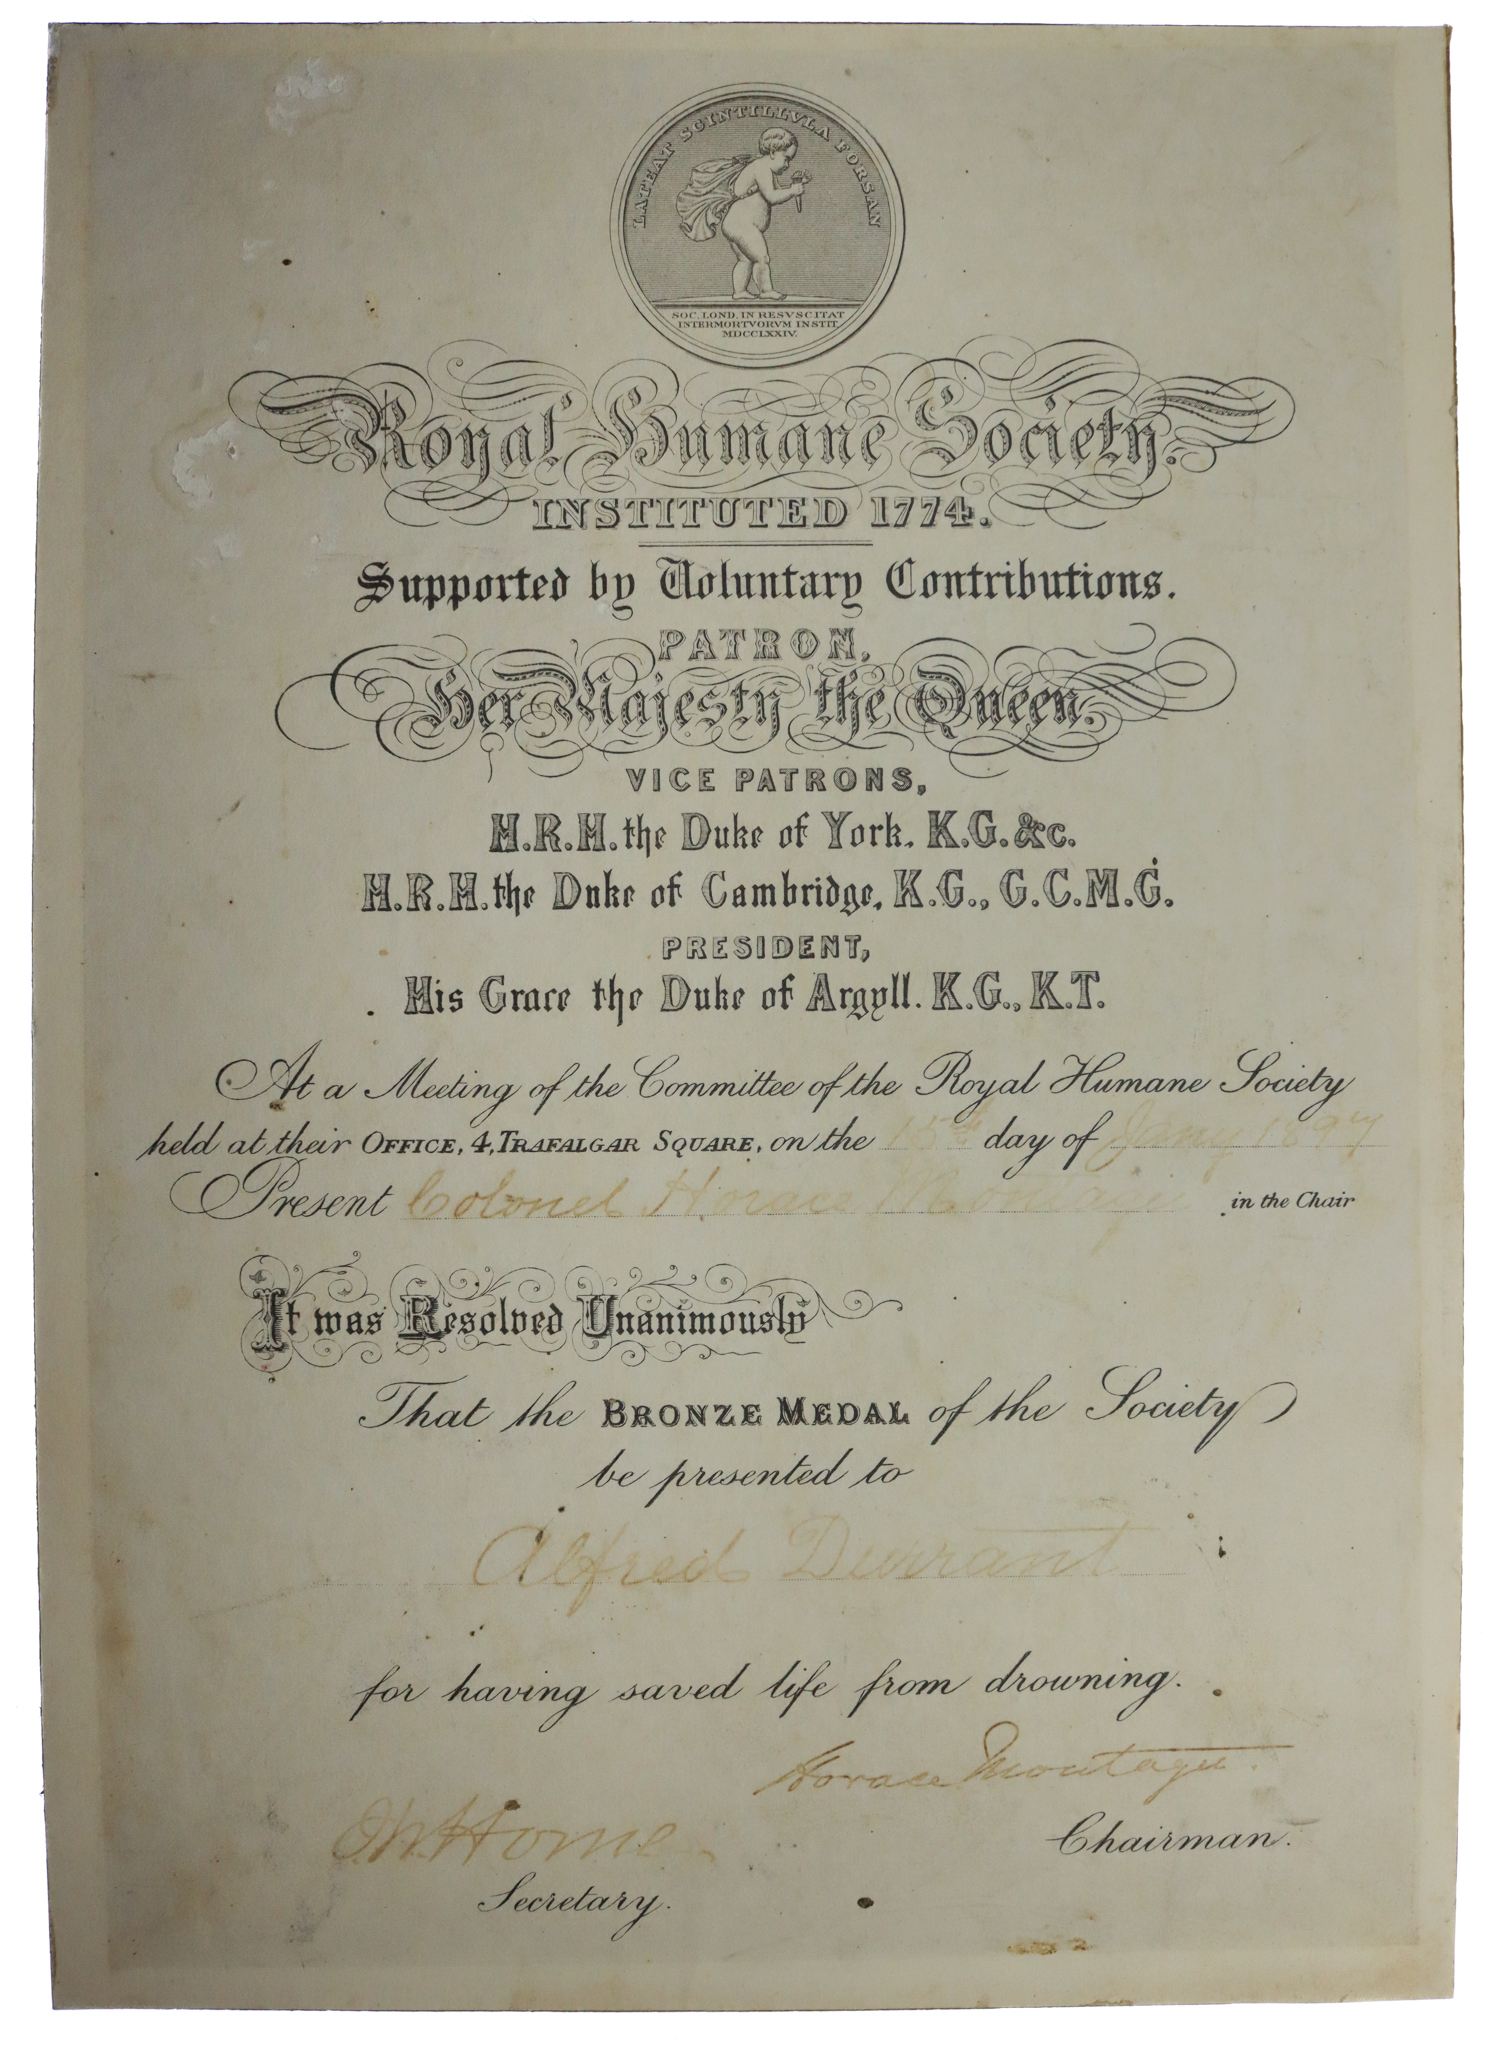 LATEAT SCINTILLVLA FORSAN
SOC. LOND. IN RESVSCITAT
INTERMORTVORVM INSTIT.
MDCCLXXIV.
Royal Humane Society.
INSTITUTED 1774.
Supported by Voluntary Contributions.
PATRON,
Her Majesty the Queen.
VICE PATRONS,
H.R.H. the Duke of York. K.G. &c.
H.R.H. the Duke of Cambridge, K.G., G.C.M.G.
PRESIDENT,
His Grace the Duke of Argyll. K.G., K.T.
At a Meeting of the Committee of the Royal Humane Society
held at their OFFICE, 4, TRAFALGAR SQUARE, on the 18th day of Jany 1897
Present Colonel Horace Montagu in the Chair
It was Resolved Unanimously
That the BRONZE MEDAL of the Society
be presented to
Alfred Durrant
for having saved life from drowning.
Horace Montagu.
Chairman.
Home
Secretary.